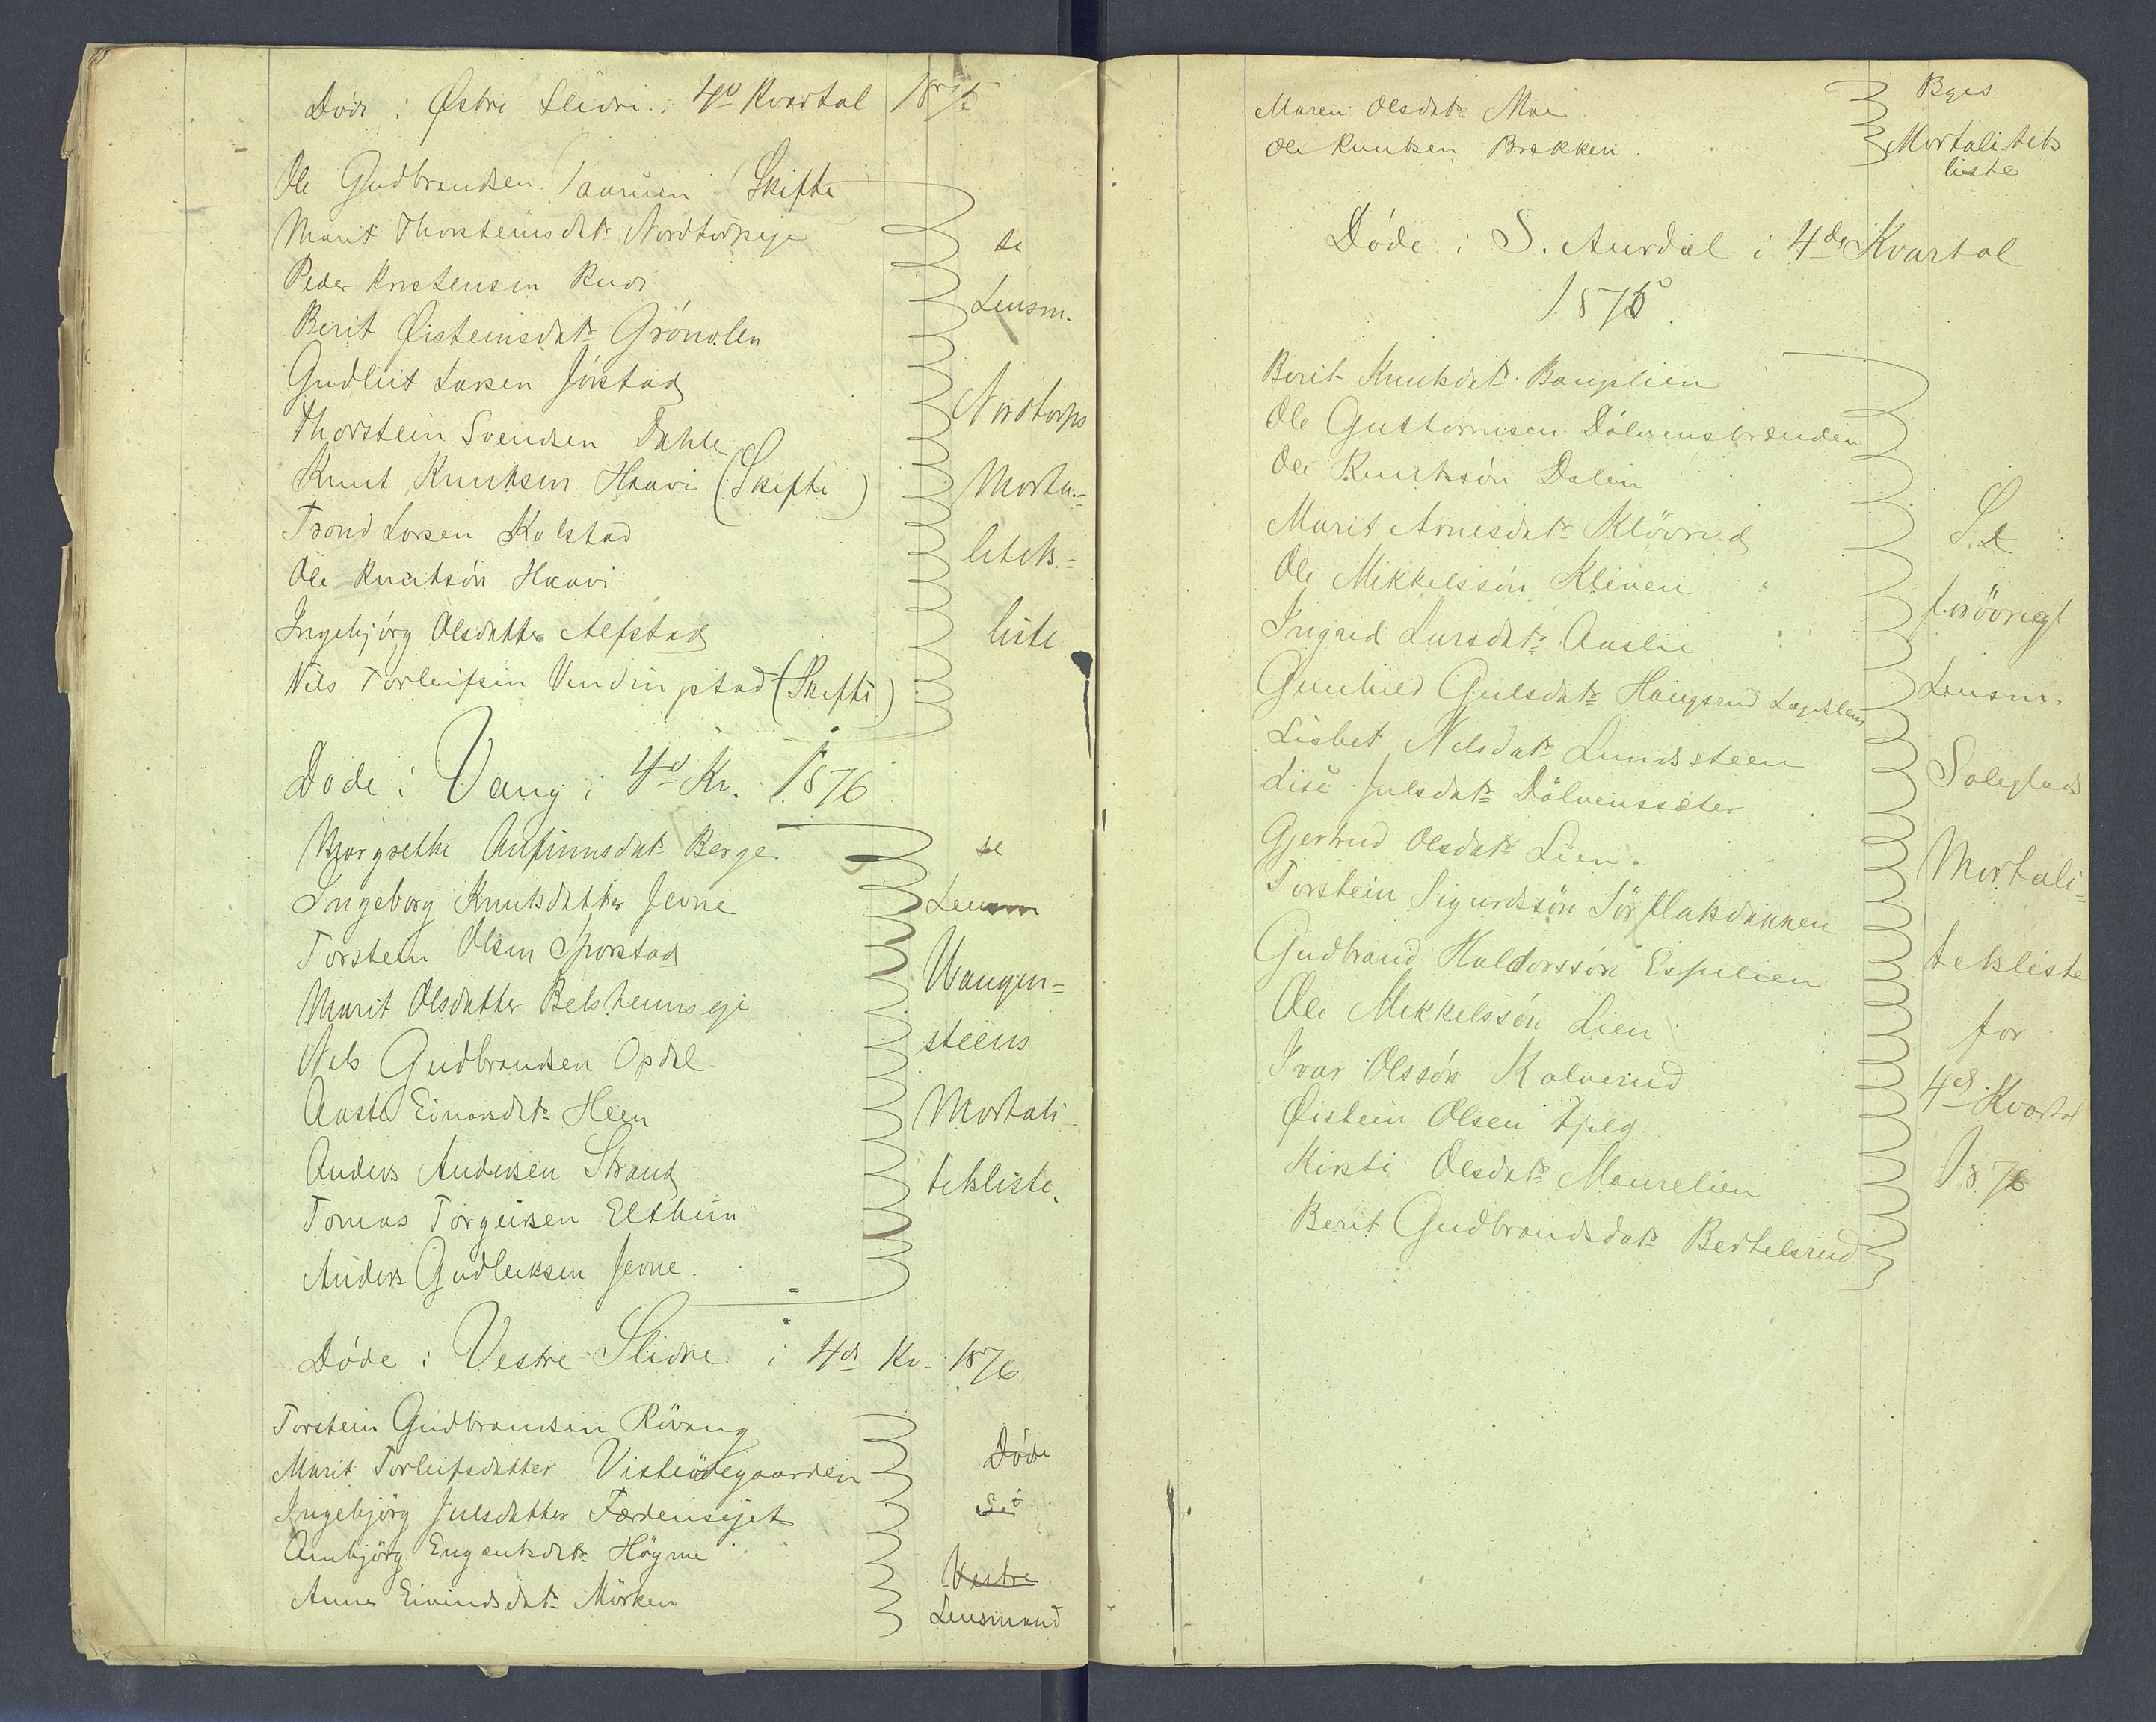 Døde i Østre Slidre i 4de Kvartal 1876
Ole Gudbrandsen (Skifte
Marit Thorsteinsdatr Nordtorpeje
Peder Kristensen Rudi
Berit Øisteinsdatr Grönolen
Gudleit Larsen Jörstad
Thorstein Svendsen Dahle
Knut Knutsen Haavi (Skifte)
Trond Larsen Kolstad
Ole Knutsön Haavi
Ingebjörg Olsdatter Alfstad
Nils Torleifsen Vindingstad (Skifte)
se
Lensm.
Nordtorps
Morta=
litets=
liste
Døde i Vang i 4de Kv. 1876
Margrethe Anfinnsdatr Berge
Ingeborg Knutsdatter Jevne
Torstein Olsen Sparstad
Marit Olsdatter Belsheimseje
Nils Gudbrandsen Opdal
Aaste Einarsdatr Heen
Anders Andersen Strand
Tomas Torgeirsen Elthun
Anders Gudleiksen Jevne
se
Lensm
Wangen=
steens
Mortali
tetsliste
Døde i Vestre Slidre i 4de Kv. 1876
Torstein Gudbrandsen Rövang
Marit Torleifsdatter Visteödegaarden
Ingebjörg Julsdatter Færdensejet
Ambjörg Engebretsdatr Høyme
Anne Eivindsdatr Mörken
Døde
Se
Vestre
Lensmand
Maren Olsdatr Moe
Ole Knutsen Brækken
Byes
Mortalitets
liste
Døde i S. Aurdal i 4de Kvartal
1876.
Berit Knutsdatr Bauglien
Ole Guttormsen Dölvensbrænden
Ole Knutssön Dalen
Marit Arnesdatr Klövrud
Ole Mikkelssön Kleven
Ingrid Larsdatr Aaslie
Gunhild Gulsdatr Haugsrud Lægdslem
Lisbet Nilsdatr Lundssteen
Lise Julsdatr Dölvenssæter
Gjertrud Olsdatr Lien
Torstein Sigurdssön Sörflatsdækken
Gudbrand Haldorssön Espelien
Ole Mikkelssön Lien
Ivar Olssön Kalverud
Øistein Olsen Fjeld
Kirsti Olsdatr Maurelien
Berit Gudbrandsdatr Bertelsrud
Se
forövrigt
Lensm.
Soleglads
Mortali=
tetsliste
for
4de Kvartal
1876